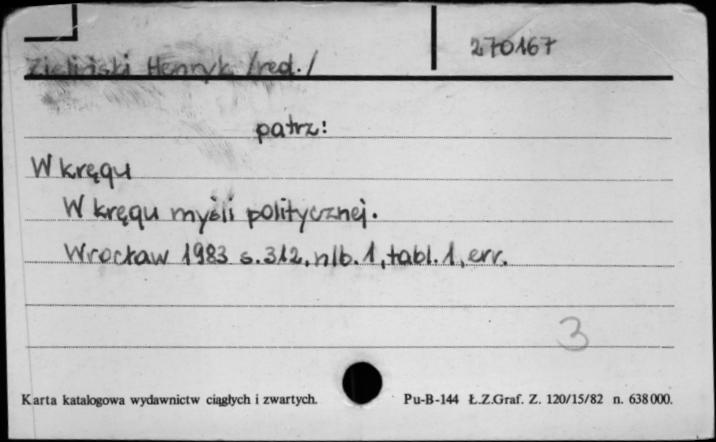 270167
Zieliński Henryk /red./
patrz:
W kręgu
W kręgu myśli politycznej.
Wrocław 1983 s.312, nlb.1, tabl.1, err.
3
Karta katalogowa wydawnictw ciągłych i zwartych. Pu-B-144 Ł.Z.Graf. Z. 120/15/82 n. 638000.